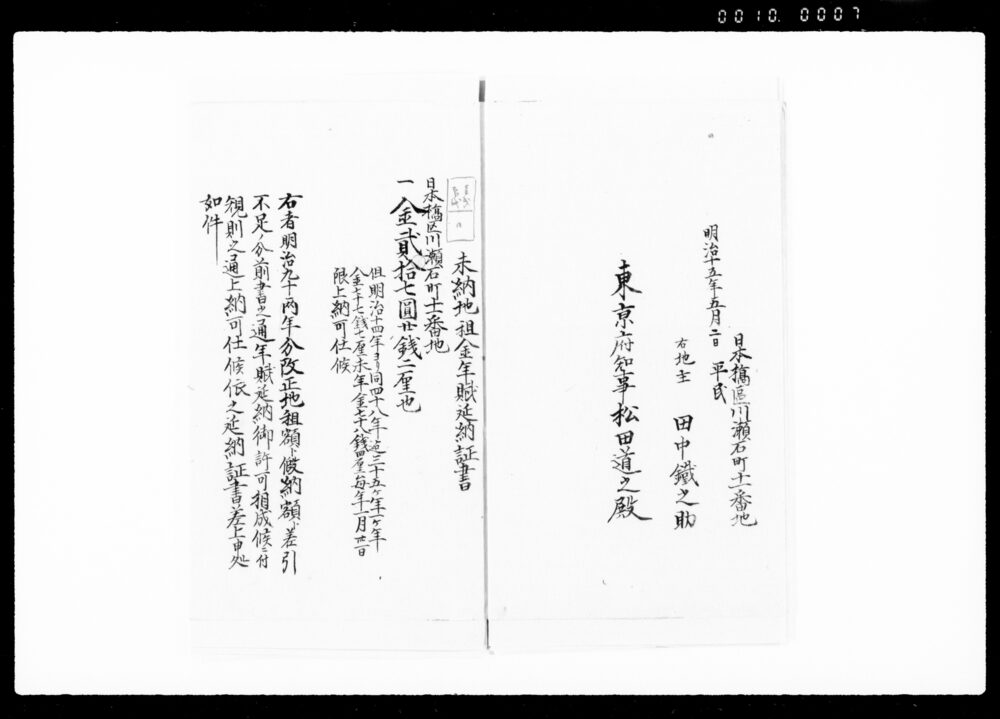 0010.0007
日本橋區川瀬石町十一番地
明治十五年五月二日 平民
右地主 田中鐵之助
東京府知事松田道之殿
未納地租金年賦延納証書
日本橋区川瀬石町十一番地
一金貳拾七圓廿銭二厘也
但明治十四年ヨリ同四十八年迄三十五ヶ年一ヶ年
金七十七銭七厘末年金七十八銭四厘毎年一月一日
限上納可仕候
右者明治九十両年分改正地租額ト假納額ト差引
不足ノ分前書之通年賦延納御許可相成候ニ付
規則之通上納可仕候依之延納証書差上申処
如件